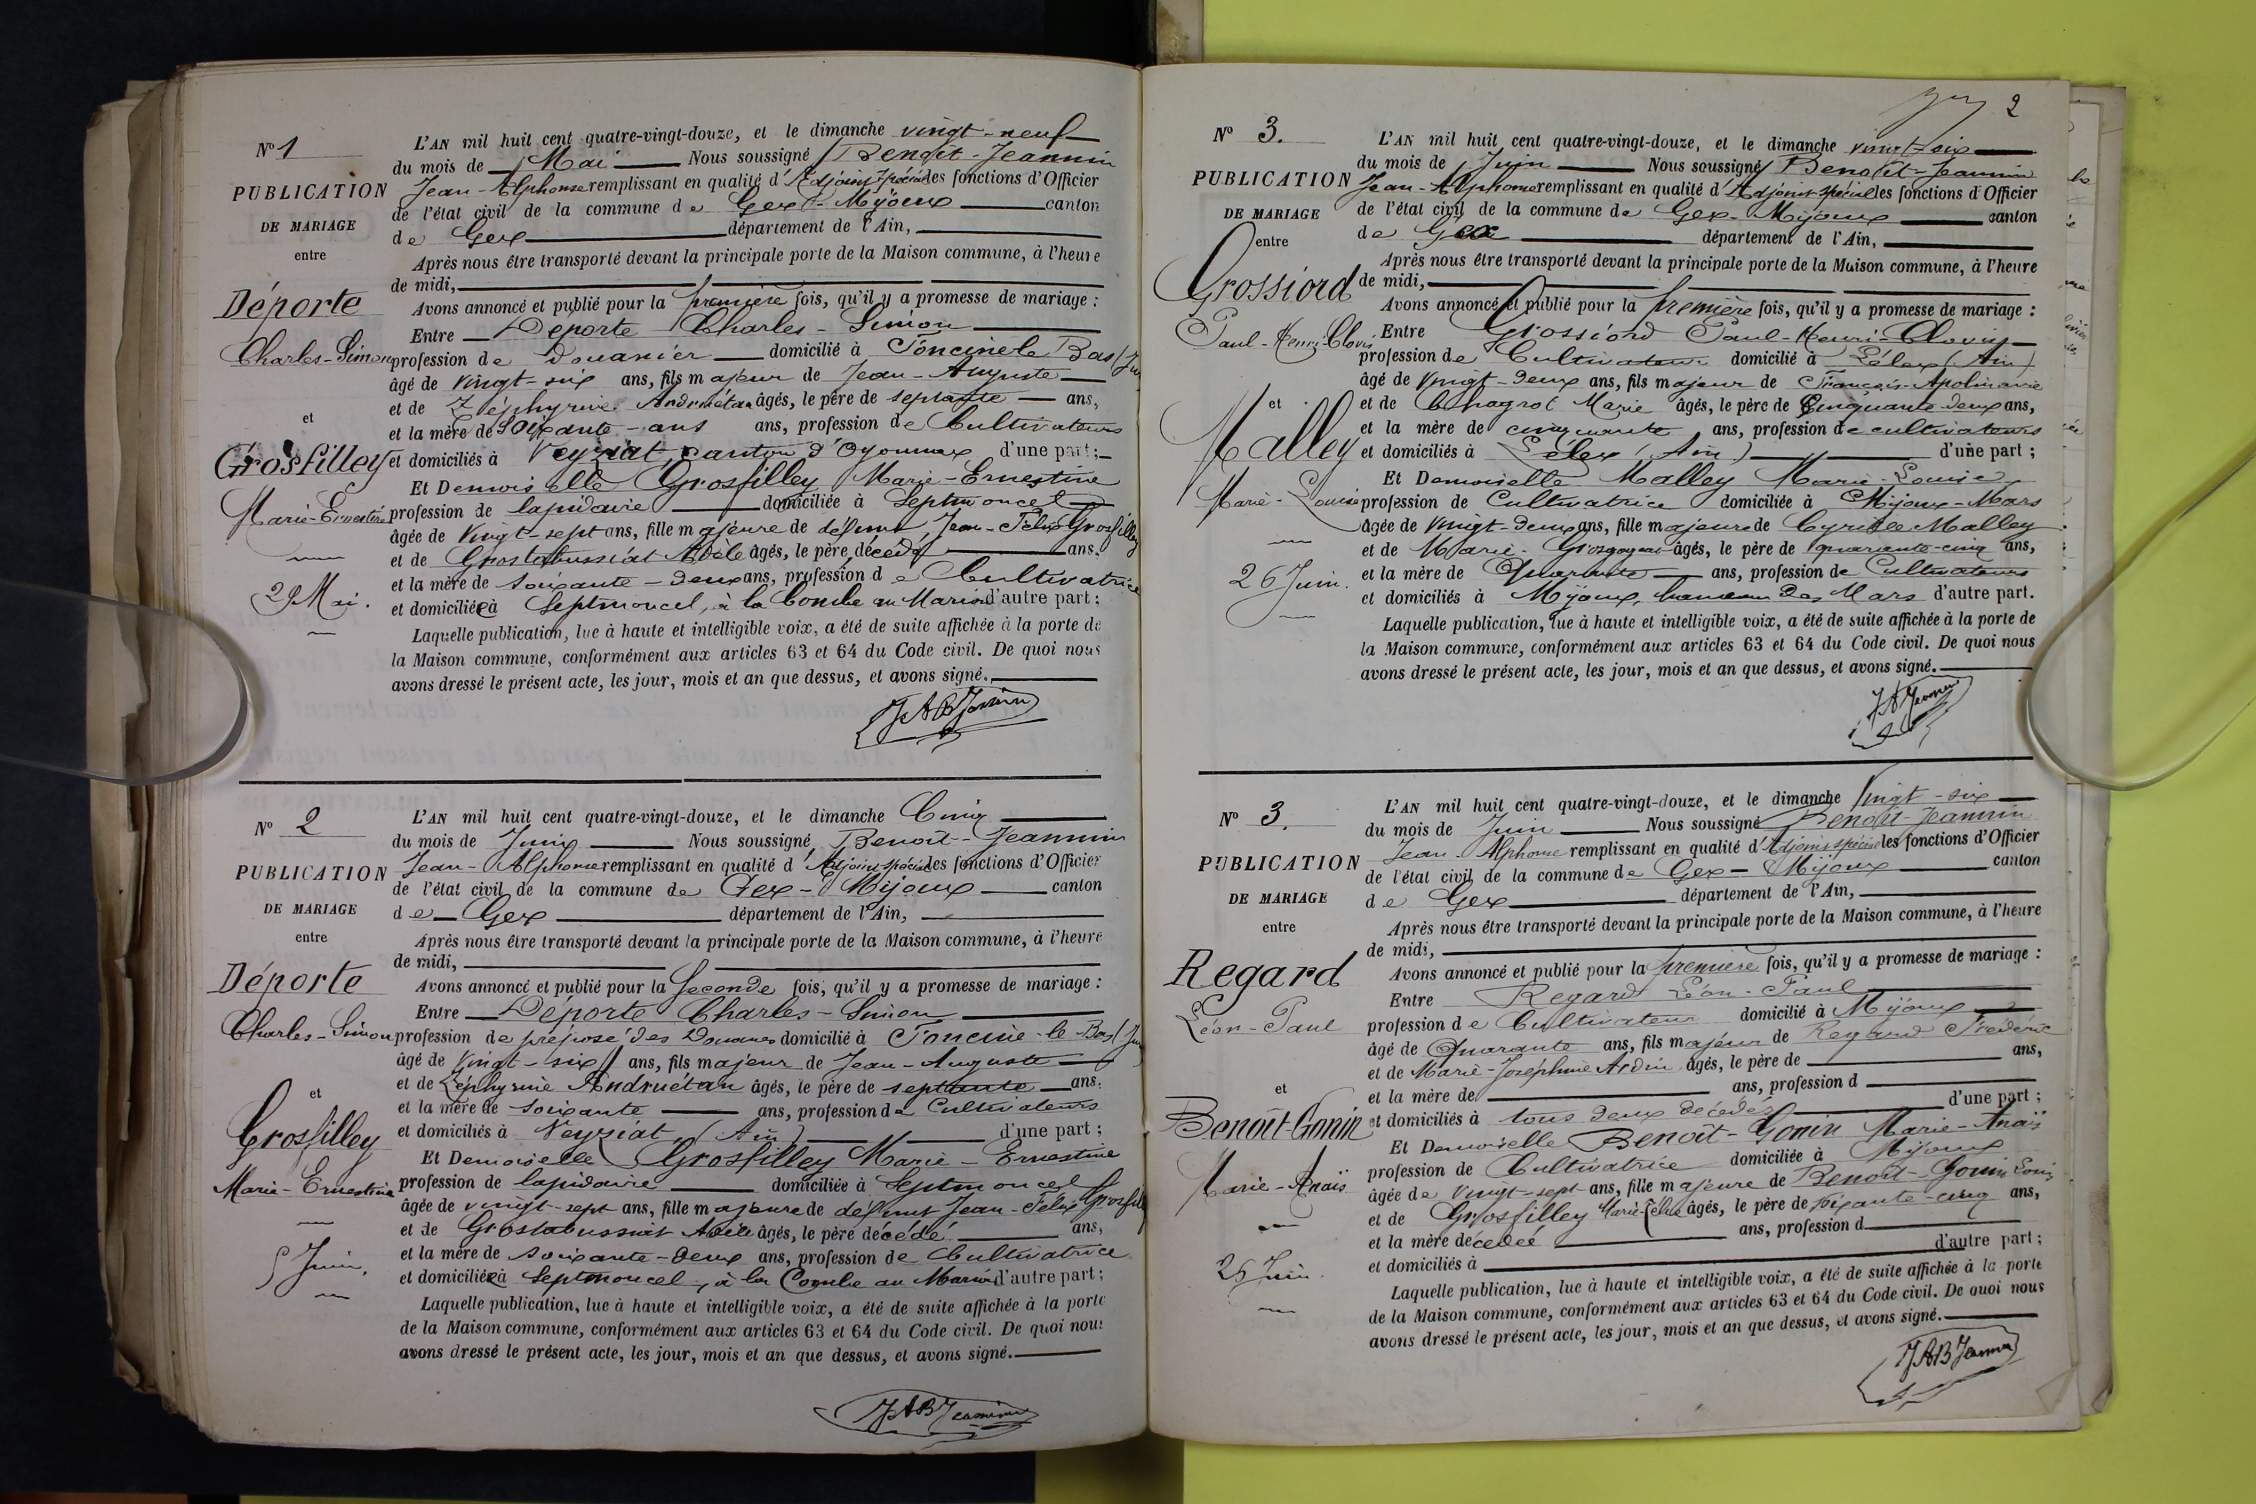 N° 1
PUBLICATION
DE MARIAGE
entre
Déporte
Charles-Simon
et
Grosfilley
Marie-Ernestine
29 Mai.
L'AN mil huit cent quatre-vingt-douze, et le dimanche vingt-neuf
du mois de Mai Nous soussigné Benoît-Jeannin
Jean-Alphonse remplissant en qualité d'Adjoint spécial les fonctions d'Officier
de l'état civil de la commune de Gex-Mijoux canton
de Gex département de l'Ain,
Après nous être transporté devant la principale porte de la Maison commune, à l'heure
de midi,
Avons annoncé et publié pour la première fois, qu'il y a promesse de mariage :
Entre Déporte Charles-Simon
profession de Douanier domicilié à Foncine le Bas (Jura
âgé de vingt-six ans, fils majeur de Jean-Auguste
et de Zéphyrine Andruétan âgés, le père de septante ans,
et la mère de soixante-ans ans, profession de Cultivateurs
et domiciliés à Veyziat, canton d'Oyonnax d'une part ;
Et Demoiselle Grosfilley Marie-Ernestine
profession de lapidaire domiciliée à Septmoncel
âgée de vingt-sept ans, fille majeure de défunt Jean-Félix Grosfilley
et de Grostabussiat Adèle âgés, le père décédé ans.
et la mère de soixante-deux ans, profession de Cultivatrice
et domiciliée à Septmoncel, à la Combe au Marin d'autre part ;
Laquelle publication, lue à haute et intelligible voix, a été de suite affichée à la porte de
la Maison commune, conformément aux articles 63 et 64 du Code civil. De quoi nous
avons dressé le présent acte, les jour, mois et an que dessus, et avons signé.
JAB Jeannin
N° 2
PUBLICATION
DE MARIAGE
entre
Déporte
Charles-Simon
et
Grosfilley
Marie-Ernestine
5 Juin.
L'AN mil huit cent quatre-vingt-douze, et le dimanche Cinq
du mois de Juin Nous soussigné Benoît-Jeannin
Jean-Alphonse remplissant en qualité d'Adjoint spécial les fonctions d'Officier
de l'état civil de la commune de Gex-Mijoux canton
de Gex département de l'Ain,
Après nous être transporté devant la principale porte de la Maison commune, à l'heure
de midi,
Avons annoncé et publié pour la seconde fois, qu'il y a promesse de mariage :
Entre Déporte Charles-Simon
profession de préposé des Douanes domicilié à Foncine-le-Bas (Jura
âgé de vingt-six ans, fils majeur de Jean-Auguste
et de Zéphyrine Andruétan âgés, le père de septante ans,
et la mère de soixante ans, profession de Cultivateurs
et domiciliés à Veyziat, (Ain) d'une part ;
Et Demoiselle Grosfilley Marie-Ernestine
profession de lapidaire domiciliée à Septmoncel
âgée de vingt-sept ans, fille majeure de défunt Jean-Félix Grosfilley
et de Grostabussiat Adèle âgés, le père décédé ans,
et la mère de soixante-deux ans, profession de Cultivatrice
et domiciliée à Septmoncel, à la Combe au Marin d'autre part ;
Laquelle publication, lue à haute et intelligible voix, a été de suite affichée à la porte
de la Maison commune, conformément aux articles 63 et 64 du Code civil. De quoi nous
avons dressé le présent acte, les jour, mois et an que dessus, et avons signé.
JAB Jeannin
2
N° 3.
PUBLICATION
DE MARIAGE
entre
Grossiord
Paul-Henri-Clovis
et
Malley
Marie-Louise
26 Juin.
L'AN mil huit cent quatre-vingt-douze, et le dimanche vingt-six
du mois de Juin Nous soussigné Benoît-Jeannin
Jean-Alphonse remplissant en qualité d'Adjoint spécial les fonctions d'Officier
de l'état civil de la commune de Gex-Mijoux canton
de Gex département de l'Ain,
Après nous être transporté devant la principale porte de la Maison commune, à l'heure
de midi,
Avons annoncé et publié pour la première fois, qu'il y a promesse de mariage :
Entre Grossiord Paul-Henri-Clovis
profession de Cultivateur domicilié à Lélex (Ain)
âgé de vingt-deux ans, fils majeur de François-Apolinaire
et de Chagrot Marie âgés, le père de Cinquante-deux ans,
et la mère de cinquante ans, profession de cultivateurs
et domiciliés à Lélex (Ain) d'une part ;
Et Demoiselle Malley Marie-Louise
profession de Cultivatrice domiciliée à Mijoux-Mars
âgée de vingt-deux ans, fille majeure de Cyrille Malley
et de Marie âgés, le père de quarante-cinq ans,
et la mère de Quarante ans, profession de Cultivateurs
et domiciliés à Mijoux, hameau des Mars d'autre part.
Laquelle publication, lue à haute et intelligible voix, a été de suite affichée à la porte de
la Maison commune, conformément aux articles 63 et 64 du Code civil. De quoi nous
avons dressé le présent acte, les jour, mois et an que dessus, et avons signé.
JA Jeannin
N° 3.
PUBLICATION
DE MARIAGE
entre
Regard
Léon-Paul
et
Benoît-Gonin
Marie-Anaïs
26 Juin.
L'AN mil huit cent quatre-vingt-douze, et le dimanche Vingt-six
du mois de Juin Nous soussigné Benoît-Jeannin
Jean-Alphonse remplissant en qualité d'Adjoint spécial les fonctions d'Officier
de l'état civil de la commune de Gex-Mijoux canton
de Gex département de l'Ain,
Après nous être transporté devant la principale porte de la Maison commune, à l'heure
de midi,
Avons annoncé et publié pour la première fois, qu'il y a promesse de mariage :
Entre Regard Léon-Paul
profession de Cultivateur domicilié à Mijoux
âgé de Quarante ans, fils majeur de Regard Frédéric
et de Marie-Joséphine Ardin âgés, le père de ans,
et la mère de ans, profession d
et domiciliés à tous deux décédés d'une part ;
Et Demoiselle Benoît-Gonin Marie-Anaïs
profession de Cultivatrice domiciliée à Mijoux
âgée de vingt-sept ans, fille majeure de Benoît-Gonin Louis
et de Grosfilley Marie-Célina âgés, le père de soixante-cinq ans,
et la mère décédée ans, profession d
et domiciliés à d'autre part ;
Laquelle publication, lue à haute et intelligible voix, a été de suite affichée à la porte
de la Maison commune, conformément aux articles 63 et 64 du Code civil. De quoi nous
avons dressé le présent acte, les jour, mois et an que dessus, et avons signé.
JAB Jeannin